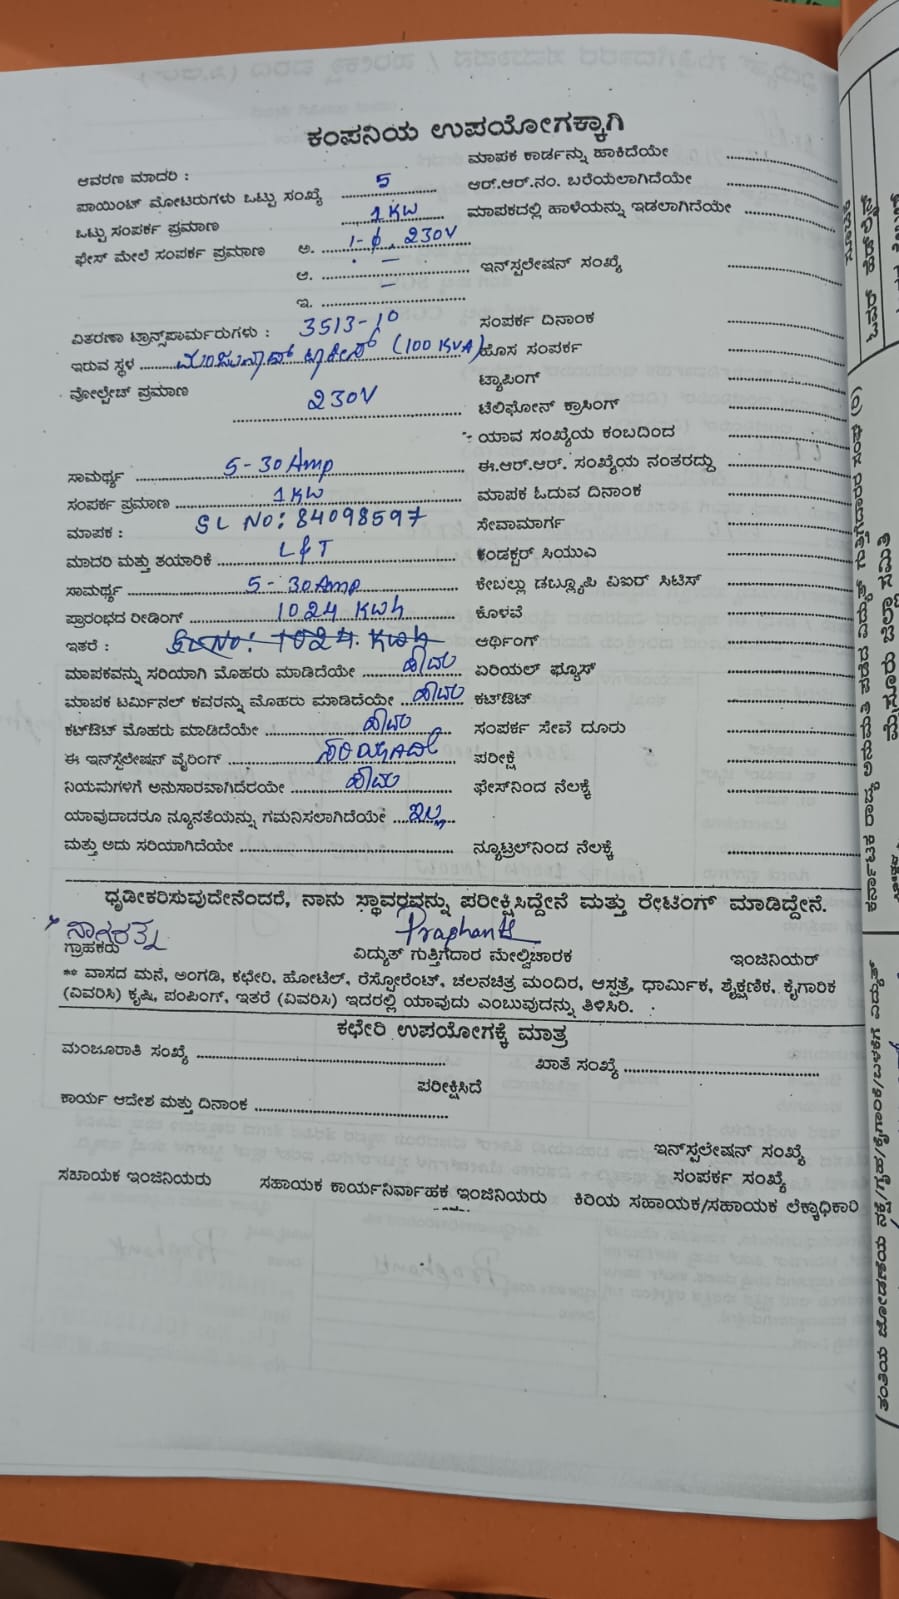 ಕಂಪನಿಯ ಉಪಯೋಗಕ್ಕಾಗಿ
ಆವರಣ ಮಾದರಿ : ಮಾಪಕ ಕಾರ್ಡನ್ನು ಹಾಕಿದೆಯೇ
ಪಾಯಿಂಟ್ ಮೋಟರುಗಳು ಒಟ್ಟು ಸಂಖ್ಯೆ 5 ಆರ್.ಆರ್.ನಂ. ಬರೆಯಲಾಗಿದೆಯೇ
ಒಟ್ಟು ಸಂಪರ್ಕ ಪ್ರಮಾಣ 1 KW ಮಾಪಕದಲ್ಲಿ ಹಾಳೆಯನ್ನು ಇಡಲಾಗಿದೆಯೇ
ಫೇಸ್ ಮೇಲೆ ಸಂಪರ್ಕ ಪ್ರಮಾಣ ಅ. 1-φ, 230V
ಆ. – ಇನ್‌ಸ್ಟಲೇಷನ್ ಸಂಖ್ಯೆ
ಇ. –
ವಿತರಣಾ ಟ್ರಾನ್ಸ್‌ಪಾರ್ಮರುಗಳು : 3513-10 ಸಂಪರ್ಕ ದಿನಾಂಕ
ಇರುವ ಸ್ಥಳ (100 KVA) ಹೊಸ ಸಂಪರ್ಕ
ವೋಲ್ಟೇಜ್ ಪ್ರಮಾಣ 230V ಟ್ಯಾಪಿಂಗ್
ಟೆಲಿಫೋನ್ ಕ್ರಾಸಿಂಗ್
ಯಾವ ಸಂಖ್ಯೆಯ ಕಂಬದಿಂದ
ಸಾಮರ್ಥ್ಯ 5-30 Amp ಈ.ಆರ್.ಆರ್. ಸಂಖ್ಯೆಯ ನಂತರದ್ದು
ಸಂಪರ್ಕ ಪ್ರಮಾಣ 1 KW ಮಾಪಕ ಓದುವ ದಿನಾಂಕ
ಮಾಪಕ : SL NO: 84098597 ಸೇವಾಮಾರ್ಗ
ಮಾದರಿ ಮತ್ತು ತಯಾರಿಕೆ L&T ಕಂಡಕ್ಟರ್ ಸಿಯುಎ
ಸಾಮರ್ಥ್ಯ 5-30 Amp ಕೇಬಲ್ಲು ಡಬ್ಲ್ಯೂಪಿ ವಿಐರ್ ಸಿಟಿಸ್
ಪ್ರಾರಂಭದ ರೀಡಿಂಗ್ 1024 KWh ಕೊಳವೆ
ಇತರೆ : SL NO: 1024 KWh ಆರ್ಥಿಂಗ್
ಮಾಪಕವನ್ನು ಸರಿಯಾಗಿ ಮೊಹರು ಮಾಡಿದೆಯೇ ಹೌದು ಏರಿಯಲ್ ಫ್ಯೂಸ್
ಮಾಪಕ ಟರ್ಮಿನಲ್ ಕವರನ್ನು ಮೊಹರು ಮಾಡಿದೆಯೇ ಹೌದು ಕಟ್‌ಔಟ್
ಕಟ್‌ಔಟ್ ಮೊಹರು ಮಾಡಿದೆಯೇ ಹೌದು ಸಂಪರ್ಕ ಸೇವೆ ದೂರು
ಈ ಇನ್‌ಸ್ಟಲೇಷನ್ ವೈರಿಂಗ್ ಸರಿಯಾಗಿದೆ ಪರೀಕ್ಷೆ
ನಿಯಮಗಳಿಗೆ ಅನುಸಾರವಾಗಿದೆರಯೇ ಹೌದು ಫೇಸ್‌ನಿಂದ ನೆಲಕ್ಕೆ
ಯಾವುದಾದರೂ ನ್ಯೂನತೆಯನ್ನು ಗಮನಿಸಲಾಗಿದೆಯೇ ಇಲ್ಲ
ಮತ್ತು ಅದು ಸರಿಯಾಗಿದೆಯೇ ನ್ಯೂಟ್ರಲ್‌ನಿಂದ ನೆಲಕ್ಕೆ
ಧೃಡೀಕರಿಸುವುದೇನೆಂದರೆ, ನಾನು ಸ್ಥಾವರವನ್ನು ಪರೀಕ್ಷಿಸಿದ್ದೇನೆ ಮತ್ತು ರೇಟಿಂಗ್ ಮಾಡಿದ್ದೇನೆ.
ನಾಗರತ್ನ Prashanth
ಗ್ರಾಹಕರು ವಿದ್ಯುತ್ ಗುತ್ತಿಗೆದಾರ ಮೇಲ್ವಿಚಾರಕ ಇಂಜಿನಿಯರ್
** ವಾಸದ ಮನೆ, ಅಂಗಡಿ, ಕಛೇರಿ, ಹೋಟೆಲ್, ರೆಸ್ಟೋರೆಂಟ್, ಚಲನಚಿತ್ರ ಮಂದಿರ, ಆಸ್ಪತ್ರೆ, ಧಾರ್ಮಿಕ, ಶೈಕ್ಷಣಿಕ, ಕೈಗಾರಿಕ
(ವಿವರಿಸಿ) ಕೃಷಿ, ಪಂಪಿಂಗ್, ಇತರೆ (ವಿವರಿಸಿ) ಇದರಲ್ಲಿ ಯಾವುದು ಎಂಬುವುದನ್ನು ತಿಳಿಸಿರಿ.
ಕಛೇರಿ ಉಪಯೋಗಕ್ಕೆ ಮಾತ್ರ
ಮಂಜೂರಾತಿ ಸಂಖ್ಯೆ ಖಾತೆ ಸಂಖ್ಯೆ
ಪರೀಕ್ಷಿಸಿದೆ
ಕಾರ್ಯ ಆದೇಶ ಮತ್ತು ದಿನಾಂಕ
ಇನ್‌ಸ್ಪಲೇಷನ್ ಸಂಖ್ಯೆ
ಸಂಪರ್ಕ ಸಂಖ್ಯೆ
ಸಹಾಯಕ ಇಂಜಿನಿಯರು ಸಹಾಯಕ ಕಾರ್ಯನಿರ್ವಾಹಕ ಇಂಜಿನಿಯರು ಕಿರಿಯ ಸಹಾಯಕ/ಸಹಾಯಕ ಲೆಕ್ಕಾಧಿಕಾರಿ